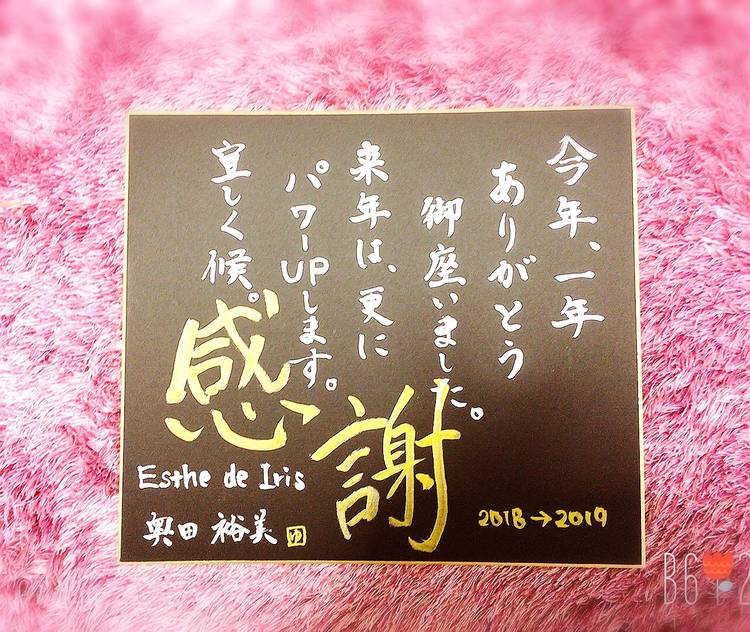 今年、一年
ありがとう
御座いました。
来年は、更に
パワーUPします。
宜しく候。
感謝
Esthe de Iris
奥田 裕美 ゆ
2018→2019
B6